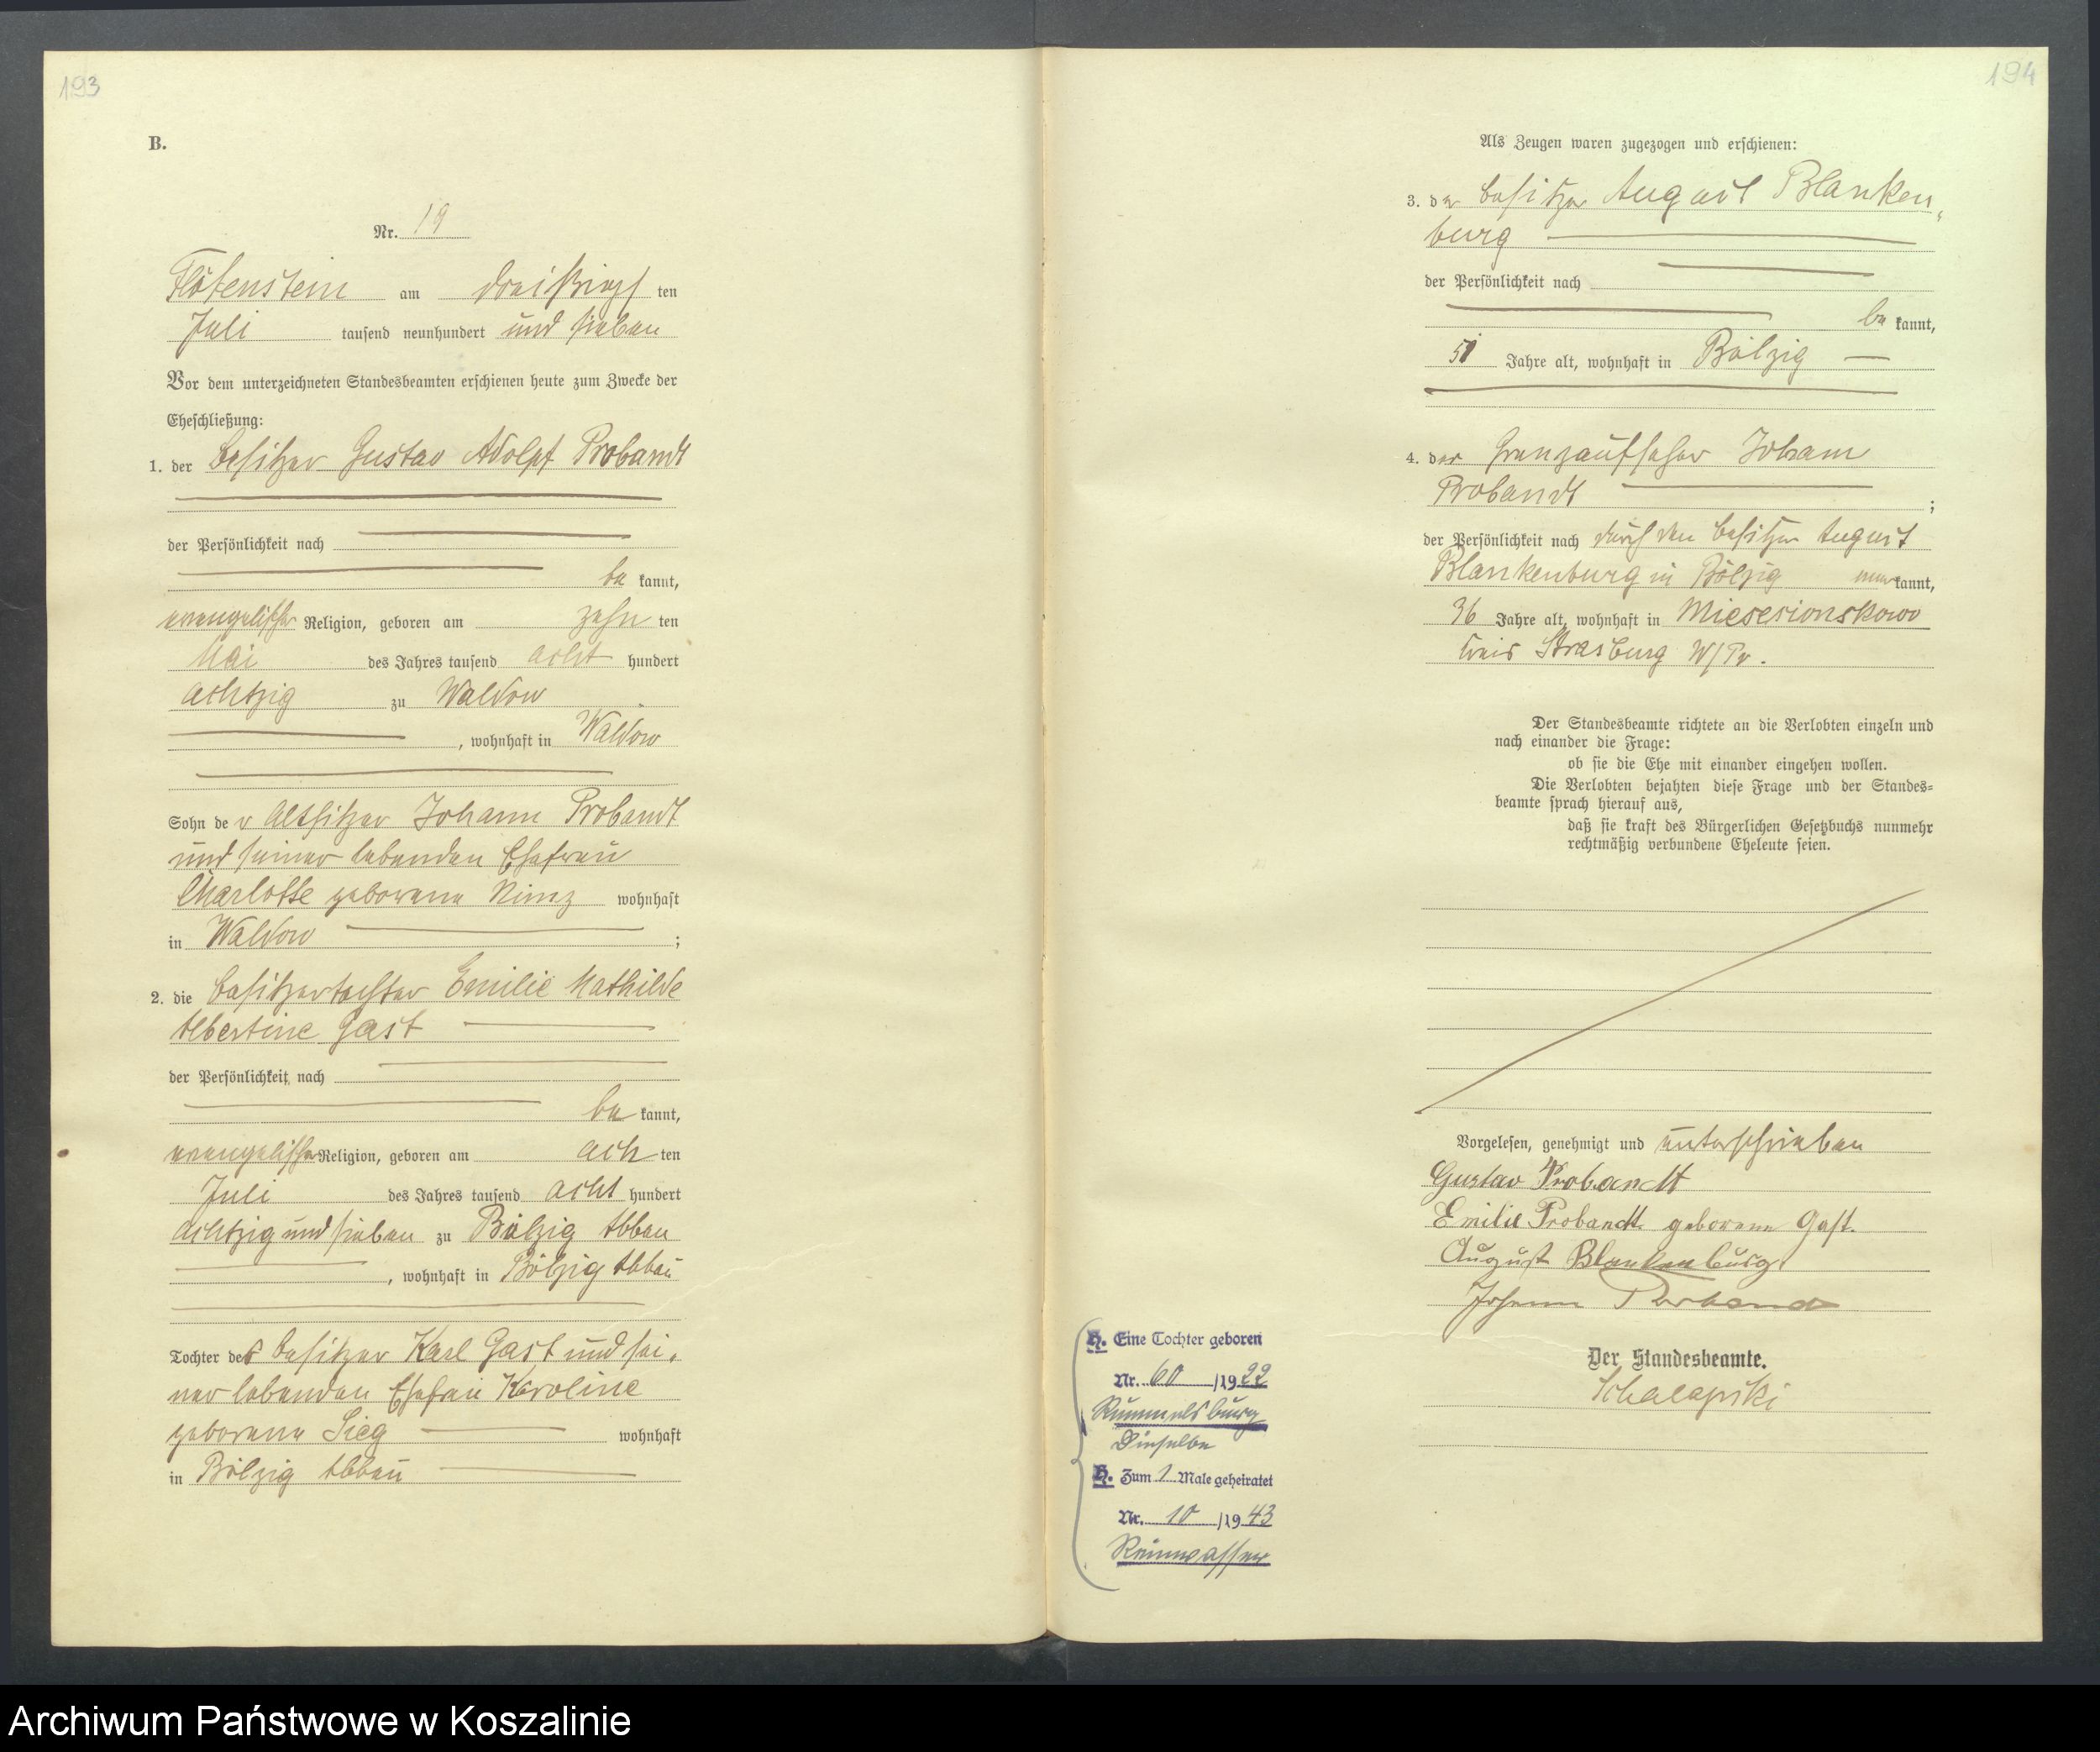 193
B.
Nr. 19
Flötenstein am dreißigs ten
Juli tausend neunhundert und sieben
Vor dem unterzeichneten Standesbeamten erschienen heute zum Zwecke der
Eheschließung:
1. der Besitzer Gustav Adolf Probandt
der Persönlichkeit nach
be kannt,
evangelischer Religion, geboren am zehn ten
Mai des Jahres tausend acht hundert
achtzig zu Waldow
, wohnhaft in Waldow
Sohn der Altsitzer Johann Probandt
und seiner lebenden Ehefrau
Charlotte geborene Nimz wohnhaft
in Waldow ;
2. die Besitzertochter Emilie Mathilde
Albertine Gast
der Persönlichkeit nach
be kannt,
evangelischer Religion, geboren am ach ten
Juli des Jahres tausend acht hundert
achtzig und sieben zu Bölzig Abbau
, wohnhaft in Bölzig Abbau
Tochter des Besitzer Karl Gast und sei-
ner lebenden Ehefrau Karoline
geborene Sieg wohnhaft
in Bölzig Abbau
194
Als Zeugen waren zugezogen und erschienen:
3. der Besitzer August Blanken-
burg
der Persönlichkeit nach
be kannt,
51 Jahre alt, wohnhaft in Bölzig
4. der Grenzaufseher Johann
Probandt ;
der Persönlichkeit nach durch den Besitzer August
Blankenburg in Bölzig anerkannt,
36 Jahre alt, wohnhaft in Miesesionskowo
Kreis Strasburg W/Pr.
Der Standesbeamte richtete an die Verlobten einzeln und
nach einander die Frage:
ob sie die Ehe mit einander eingehen wollen.
Die Verlobten bejahten diese Frage und der Standes-
beamte sprach hierauf aus,
daß sie kraft des Bürgerlichen Gesetzbuchs nunmehr
rechtmäßig verbundene Eheleute seien.
Vorgelesen, genehmigt und unterschrieben
Gustav Probandt
Emilie Probandt geborene Gast.
August Blankenburg
Johann Probandt
Der Standesbeamte.
Schalapski
H. Eine Tochter geboren
Nr. 60 /1922
Rummelsburg
Dieselbe
H. Zum 1 Male geheiratet
Nr. 10 /1943
Reinwasser
Archiwum Państwowe w Koszalinie